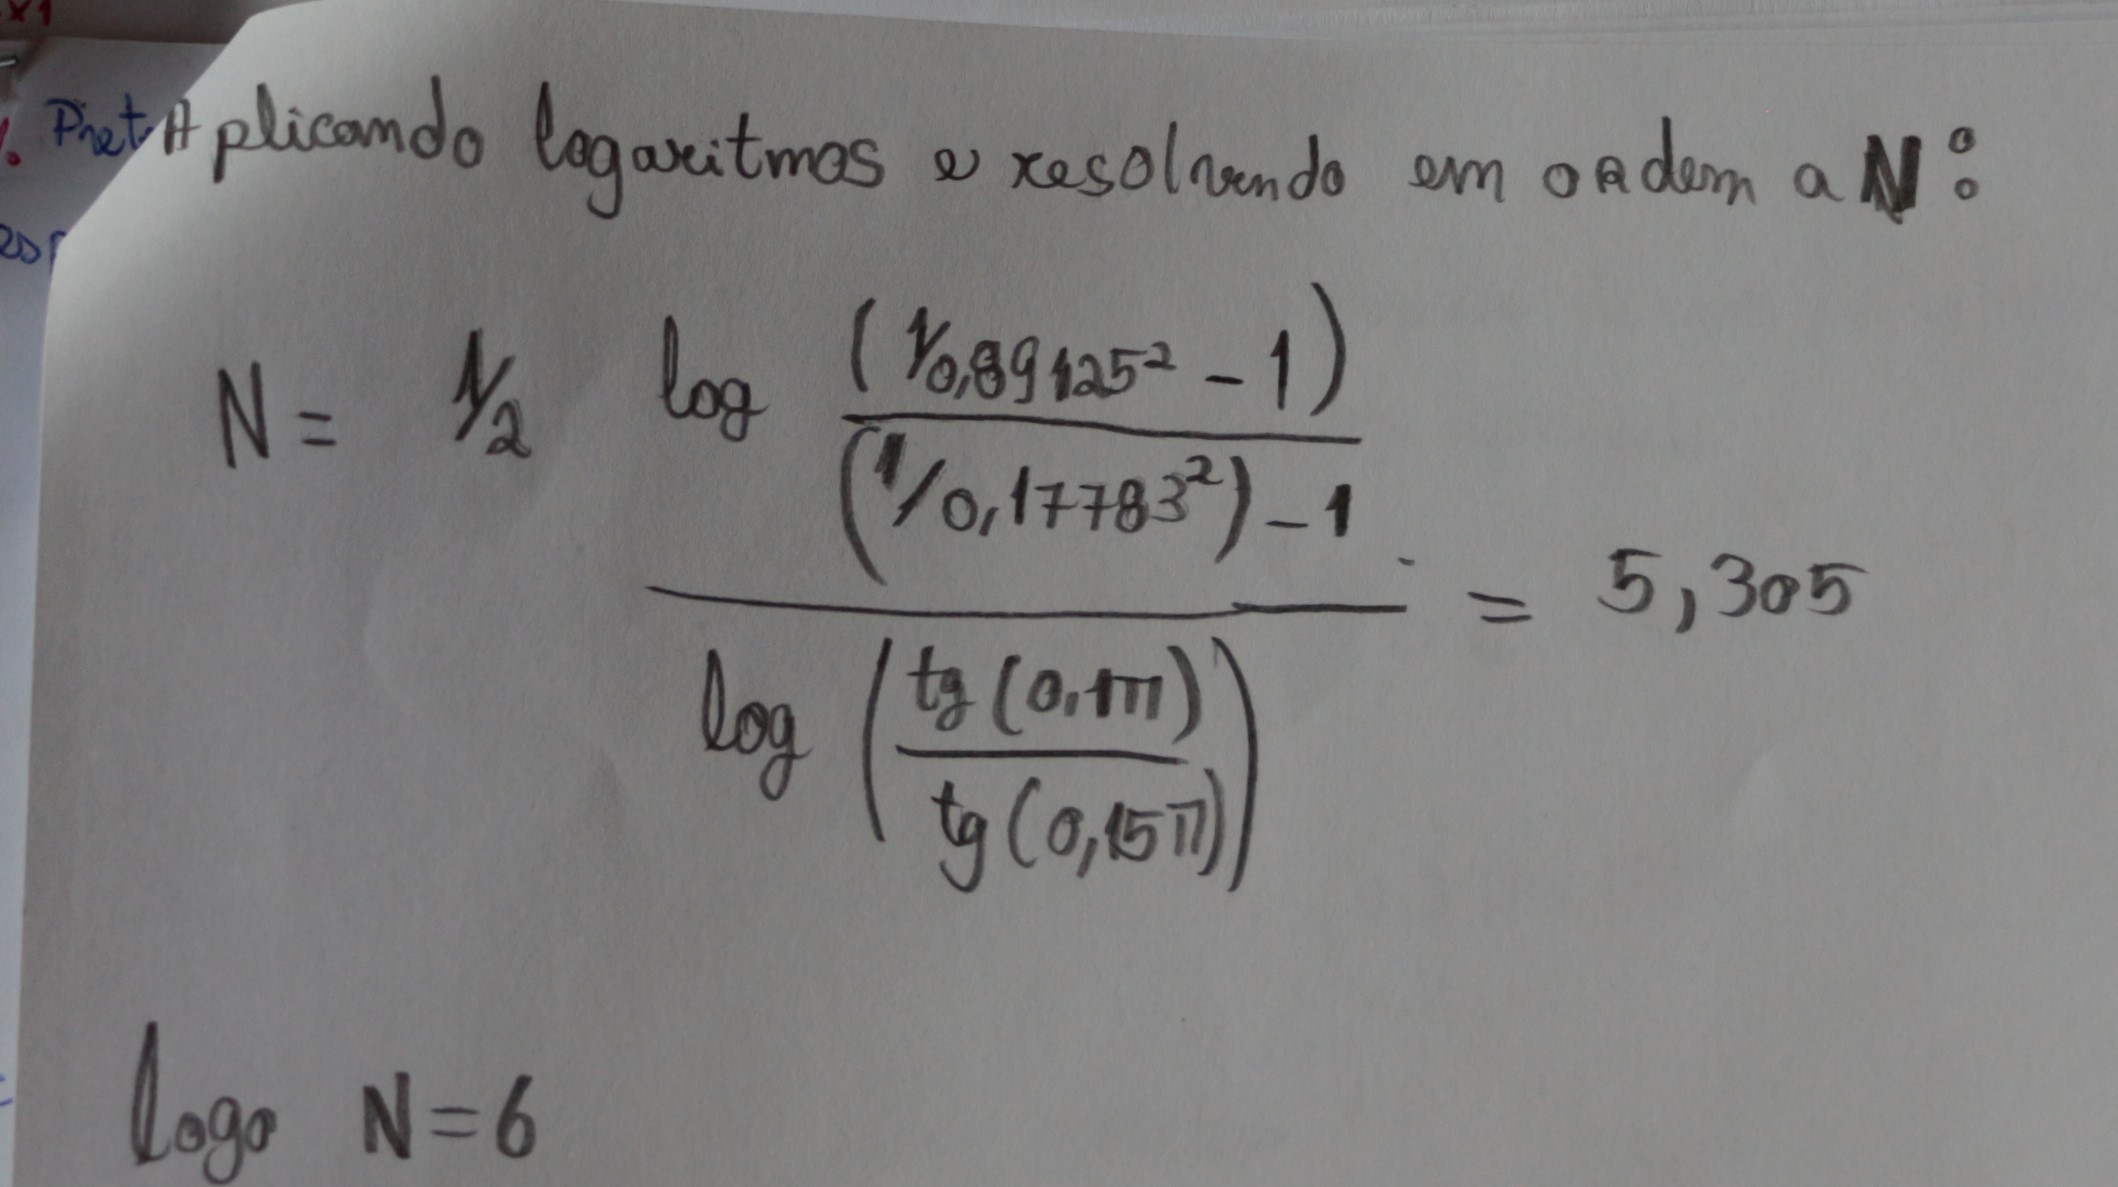 Aplicando logaritmos e resolvendo em ordem a N:
N = 1/2 log (1/0,89125² - 1)
(1/0,17783²) - 1
= 5,305
log (tg (0,1π)
tg (0,15π))
logo N = 6